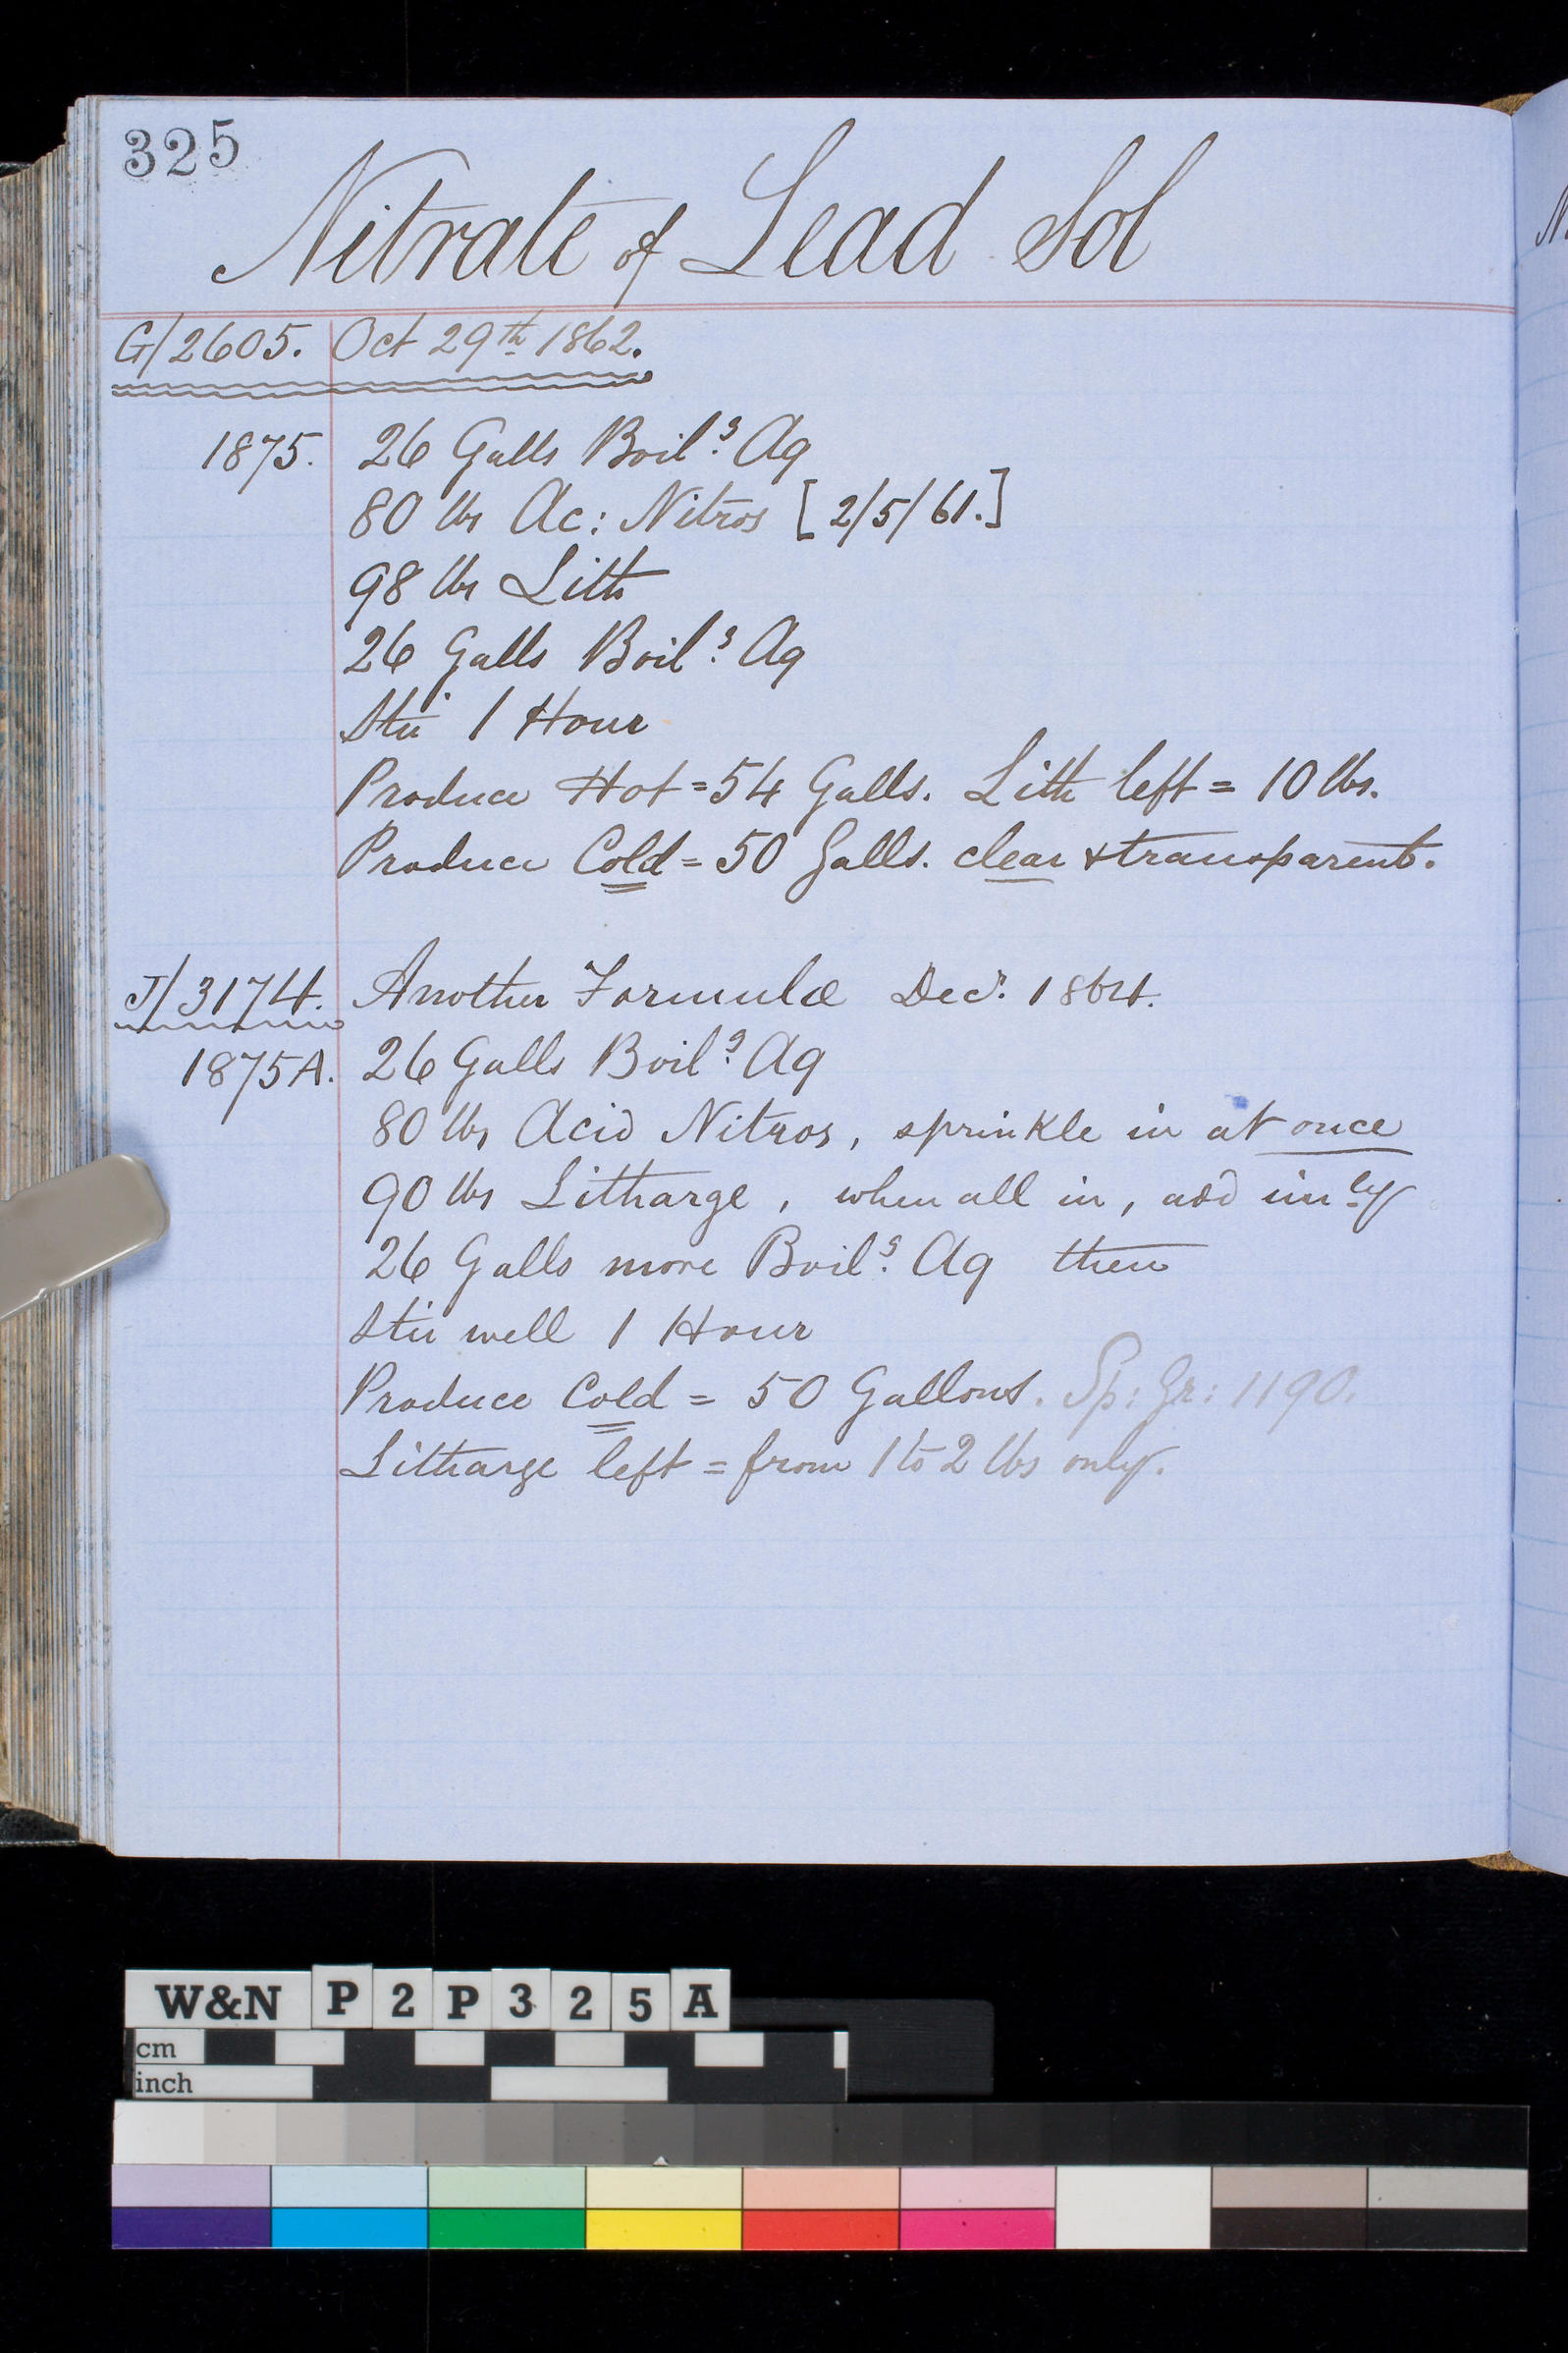 325
Nitrate of Lead Sol
G/2605. Oct 29th 1862.
1875. 26 Galls Boilg. Aq
80 lbs Ac: Nitros [2/5/61.]
98 lbs Lith
26 Galls Boilg. Aq
Stir 1 Hour
Produce Hot = 54 Galls. Lith left = 10 lbs.
Produce Cold = 50 Galls. clear & transparent.
J/3174. Another Formulæ Decr. 1864.
1875A. 26 Galls Boilg. Aq
80 lbs Acid Nitros, sprinkle in at once
90 lbs Litharge, when all in, add imly
26 Galls more Boilg. Aq then
Stir well 1 Hour
Produce Cold = 50 Gallons. Sp: Gr: 1190.
Litharge left = from 1 to 2 lbs only.
W&N P2P325A
cm
inch